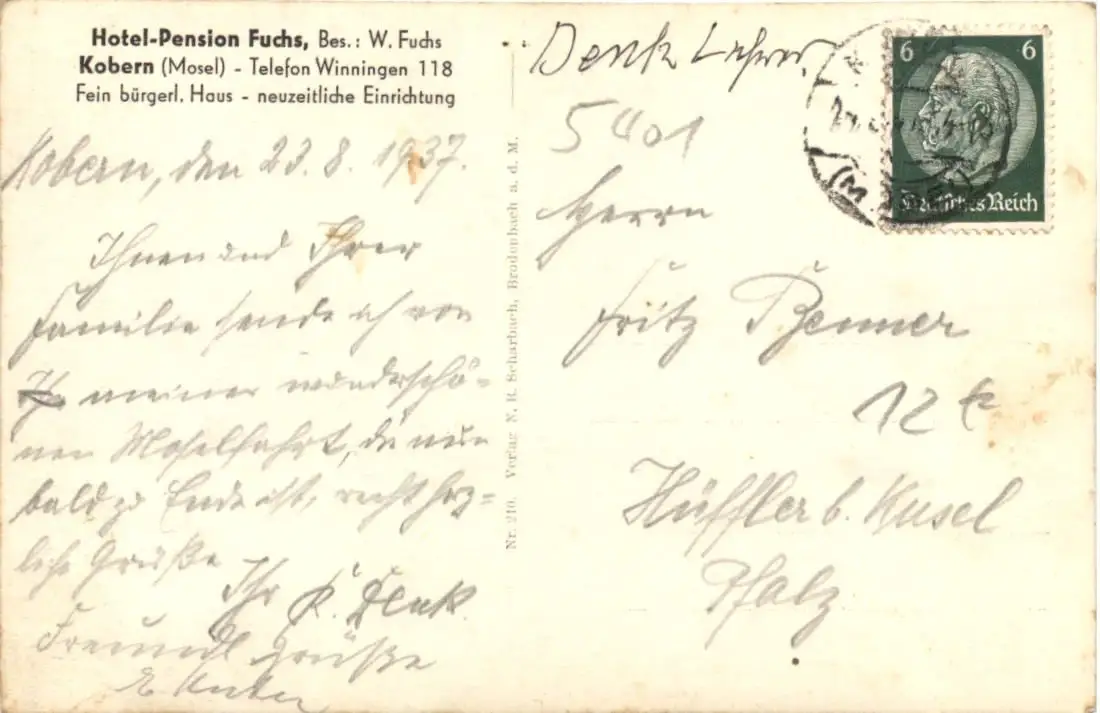 Hotel-Pension Fuchs, Bes.: W. Fuchs
Kobern (Mosel) - Telefon Winningen 118
Fein bürgerl. Haus - neuzeitliche Einrichtung
Kobern, den 23. 8. 1937.
Ihnen und Ihrer
Familie sende ich von
meiner wunderschö-
nen Moselfahrt, die nun
bald zu Ende ist, recht herz-
liche Grüße
Ihr K. Denk
Freundl. Grüße
Nr. 210. Verlag N. R. Scharbach, Brodenbach a. d. M.
Denk Lehrer
Herrn
Fritz Benner
12
Hüffler b. Kusel
Pfalz
6 6
Deutsches Reich